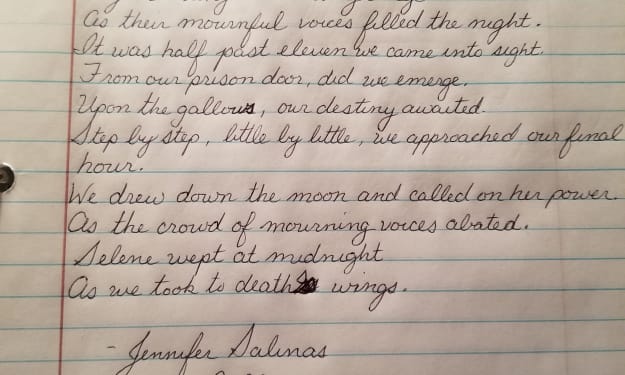 As their mournful voices filled the night.
It was half past eleven we came into sight.
From our prison door, did we emerge.
Upon the gallows, our destiny awaited.
Step by step, little by little, we approached our final
hour.
We drew down the moon and called on her power.
As the crowd of mourning voices abated.
Selene wept at midnight
As we took to death wings.
- Jennifer Salinas